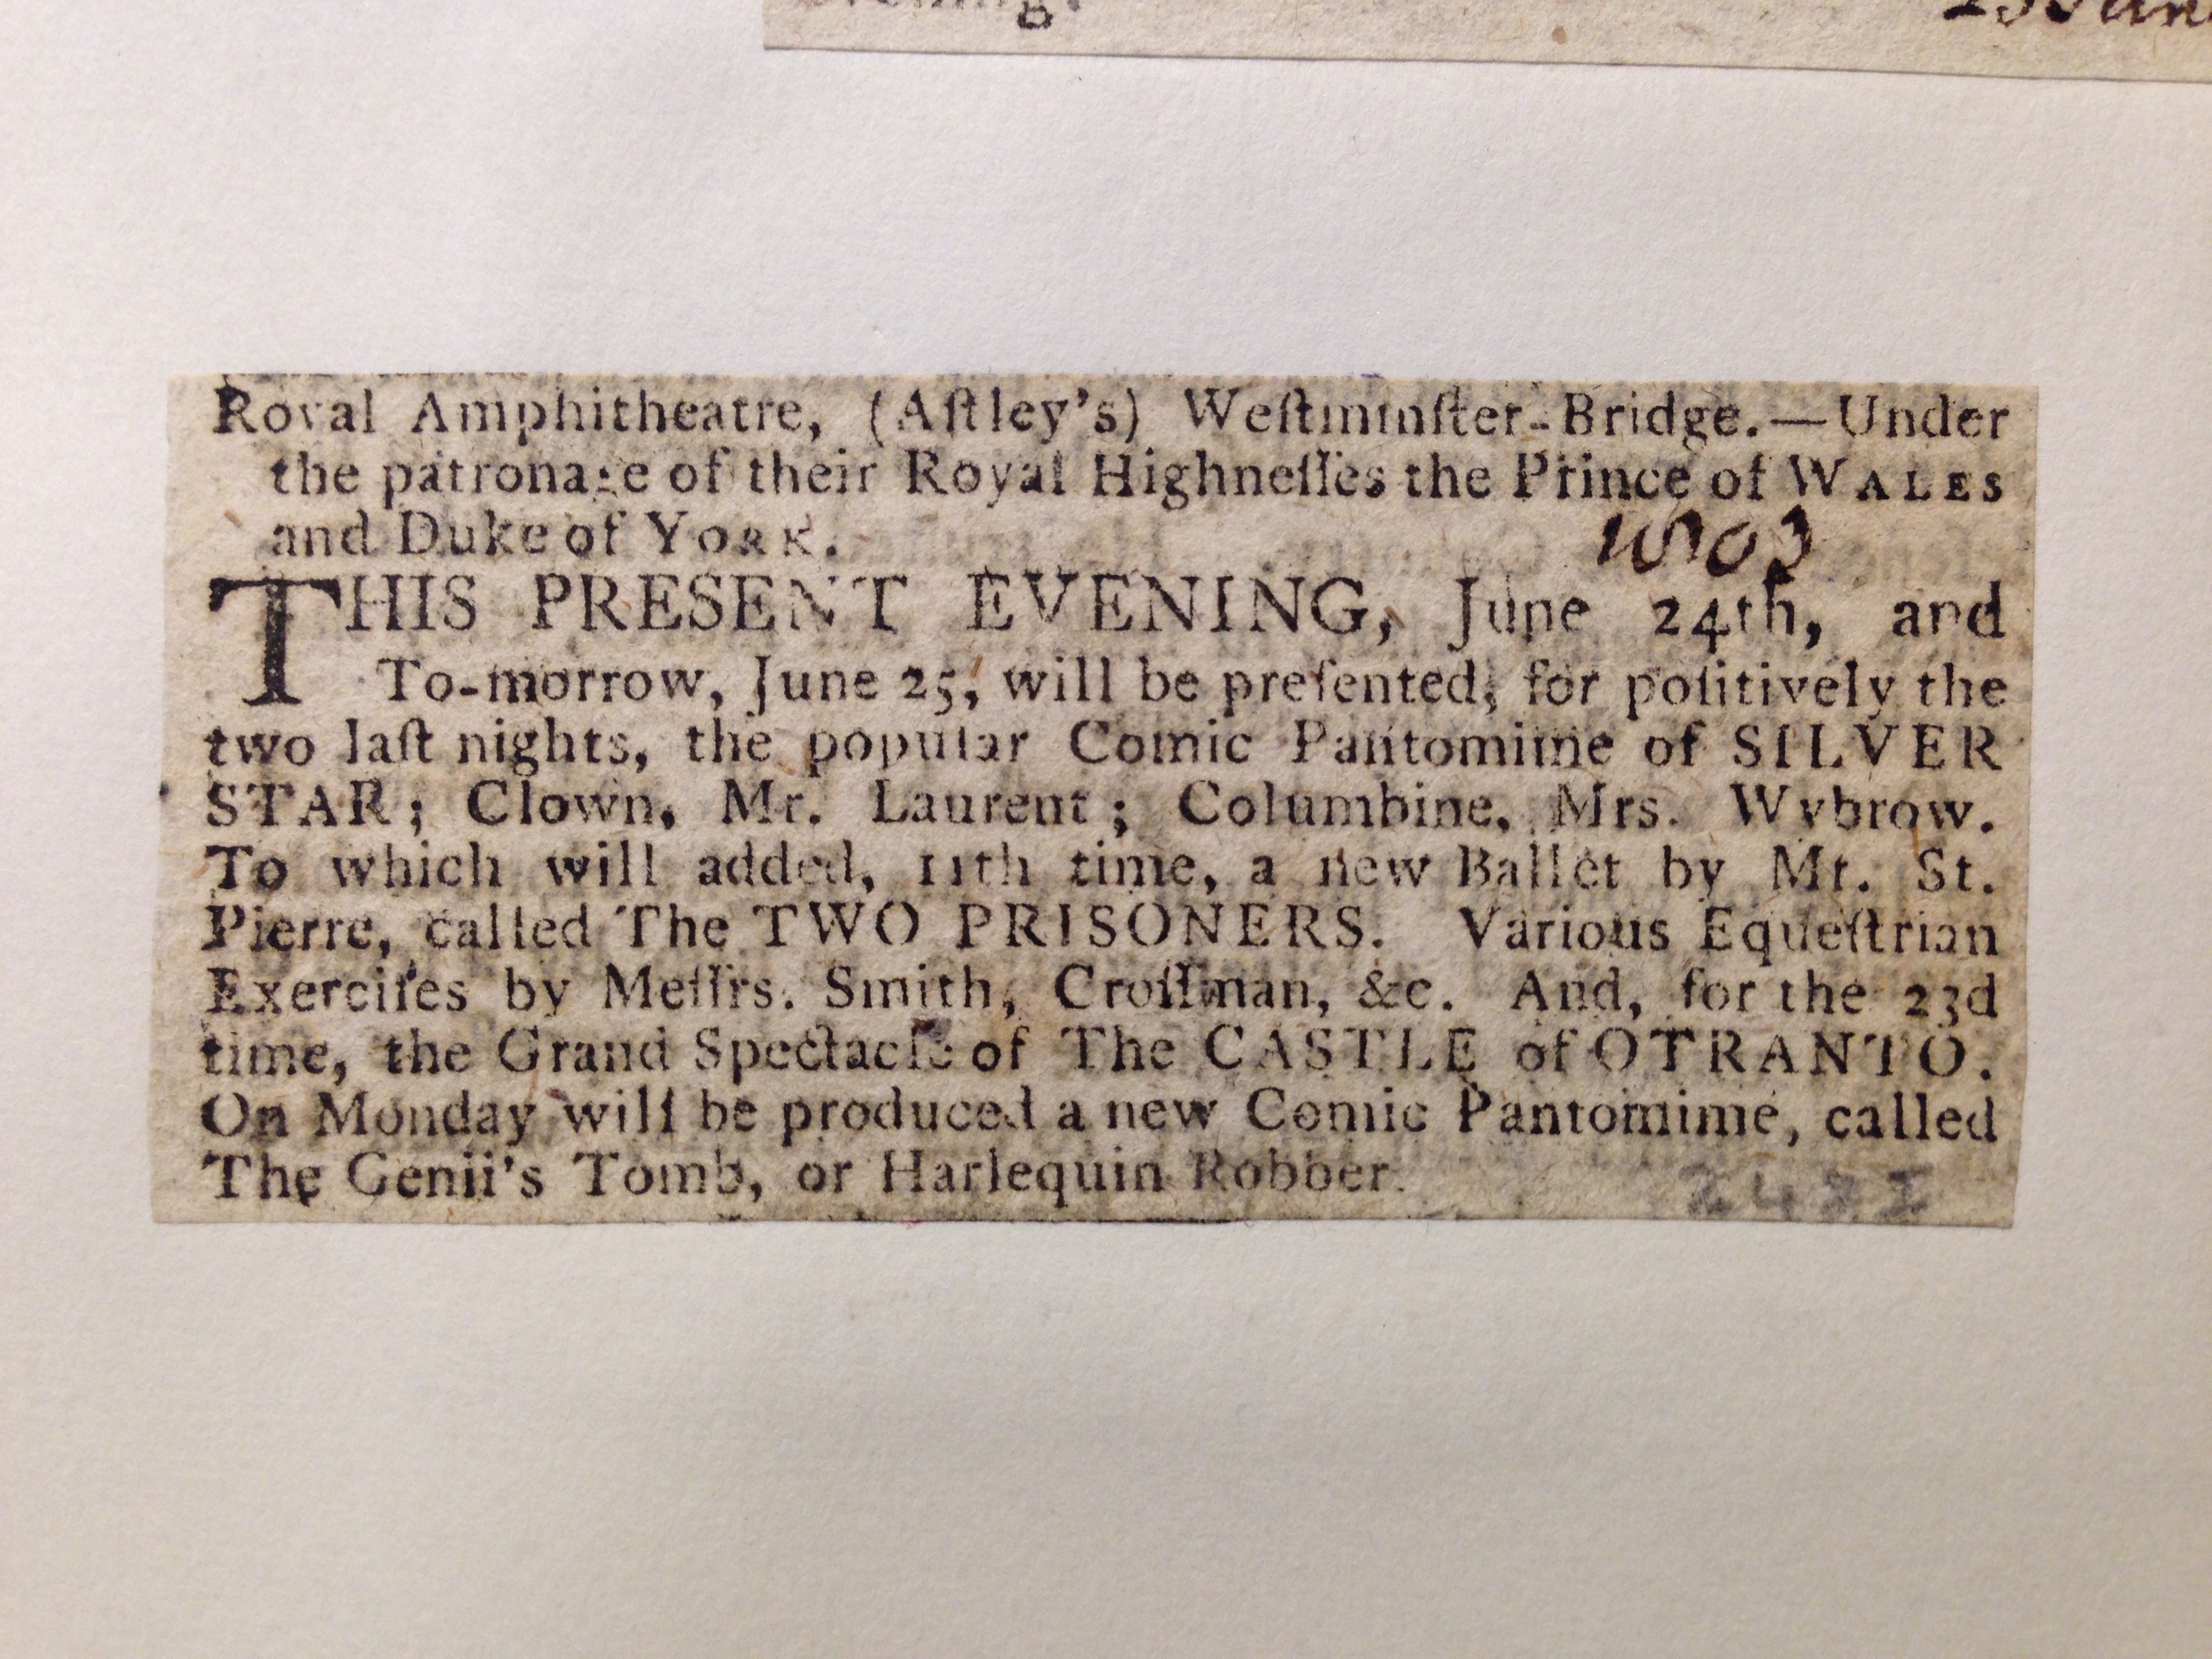 Royal Amphitheatre, (Aſtley's) Weſtminſter-Bridge.—Under
the patronage of their Royal Highneſſes the Prince of WALES
and Duke of YORK.
1803
THIS PRESENT EVENING, June 24th, and
To-morrow, June 25, will be preſented, for poſitively the
two laſt nights, the popular Comic Pantomime of SILVER
STAR; Clown, Mr. Laurent; Columbine, Mrs. Wybrow.
To which will added, 11th time, a new Ballet by Mr. St.
Pierre, called The TWO PRISONERS. Various Equeſtrian
Exerciſes by Meſſrs. Smith, Croſſman, &c. And, for the 23d
time, the Grand Spectacle of The CASTLE of OTRANTO.
On Monday will be produced a new Comic Pantomime, called
The Genii's Tomb, or Harlequin Robber.